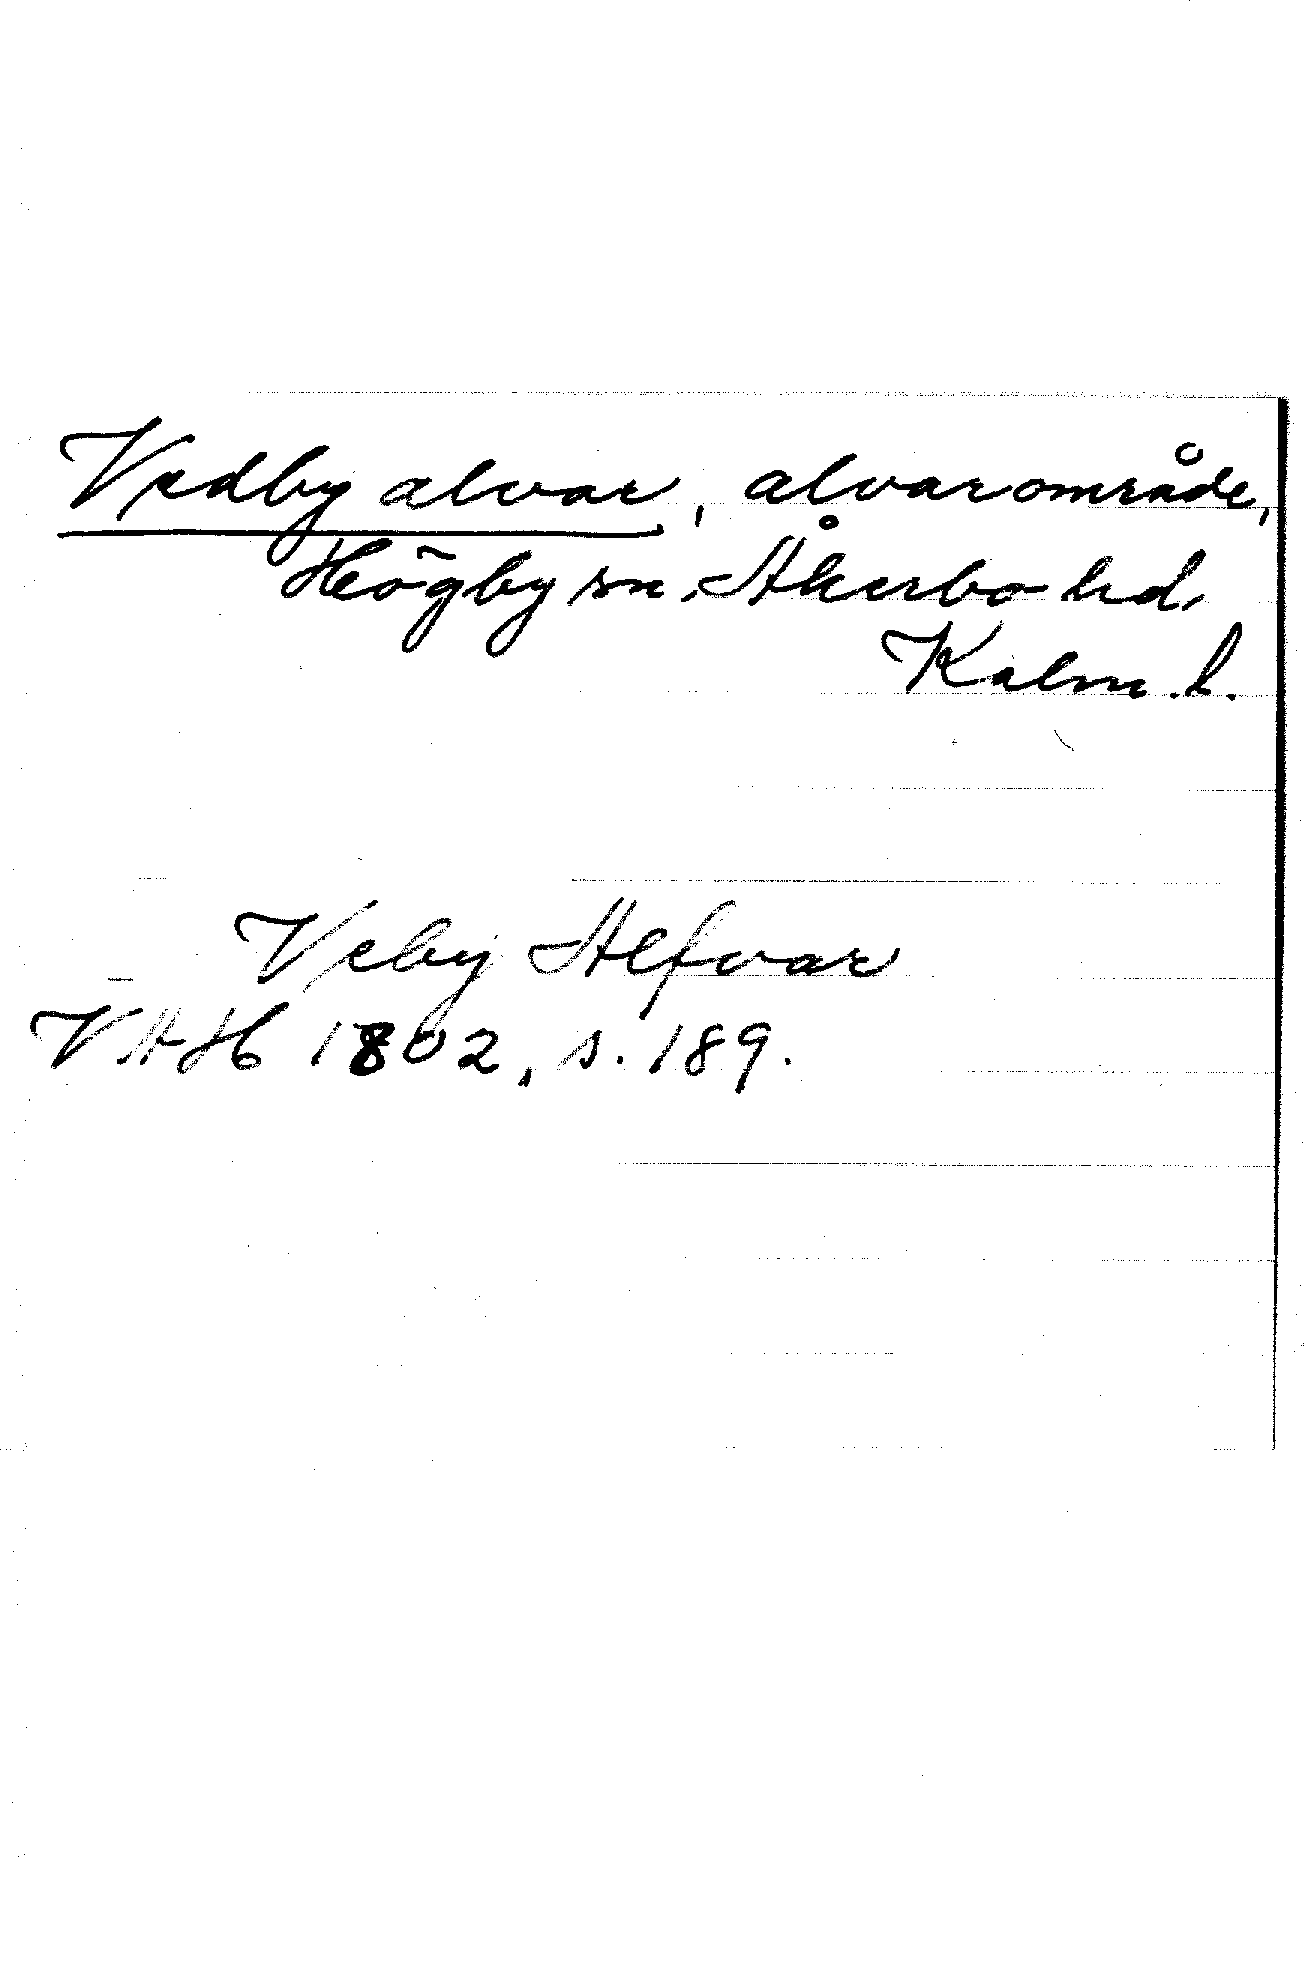 Vedby alvar, alvarområde,
Högby sn, Åkerbo hd,
Kalm. l.
Veby Alfvar
VAH 1802, s. 189.